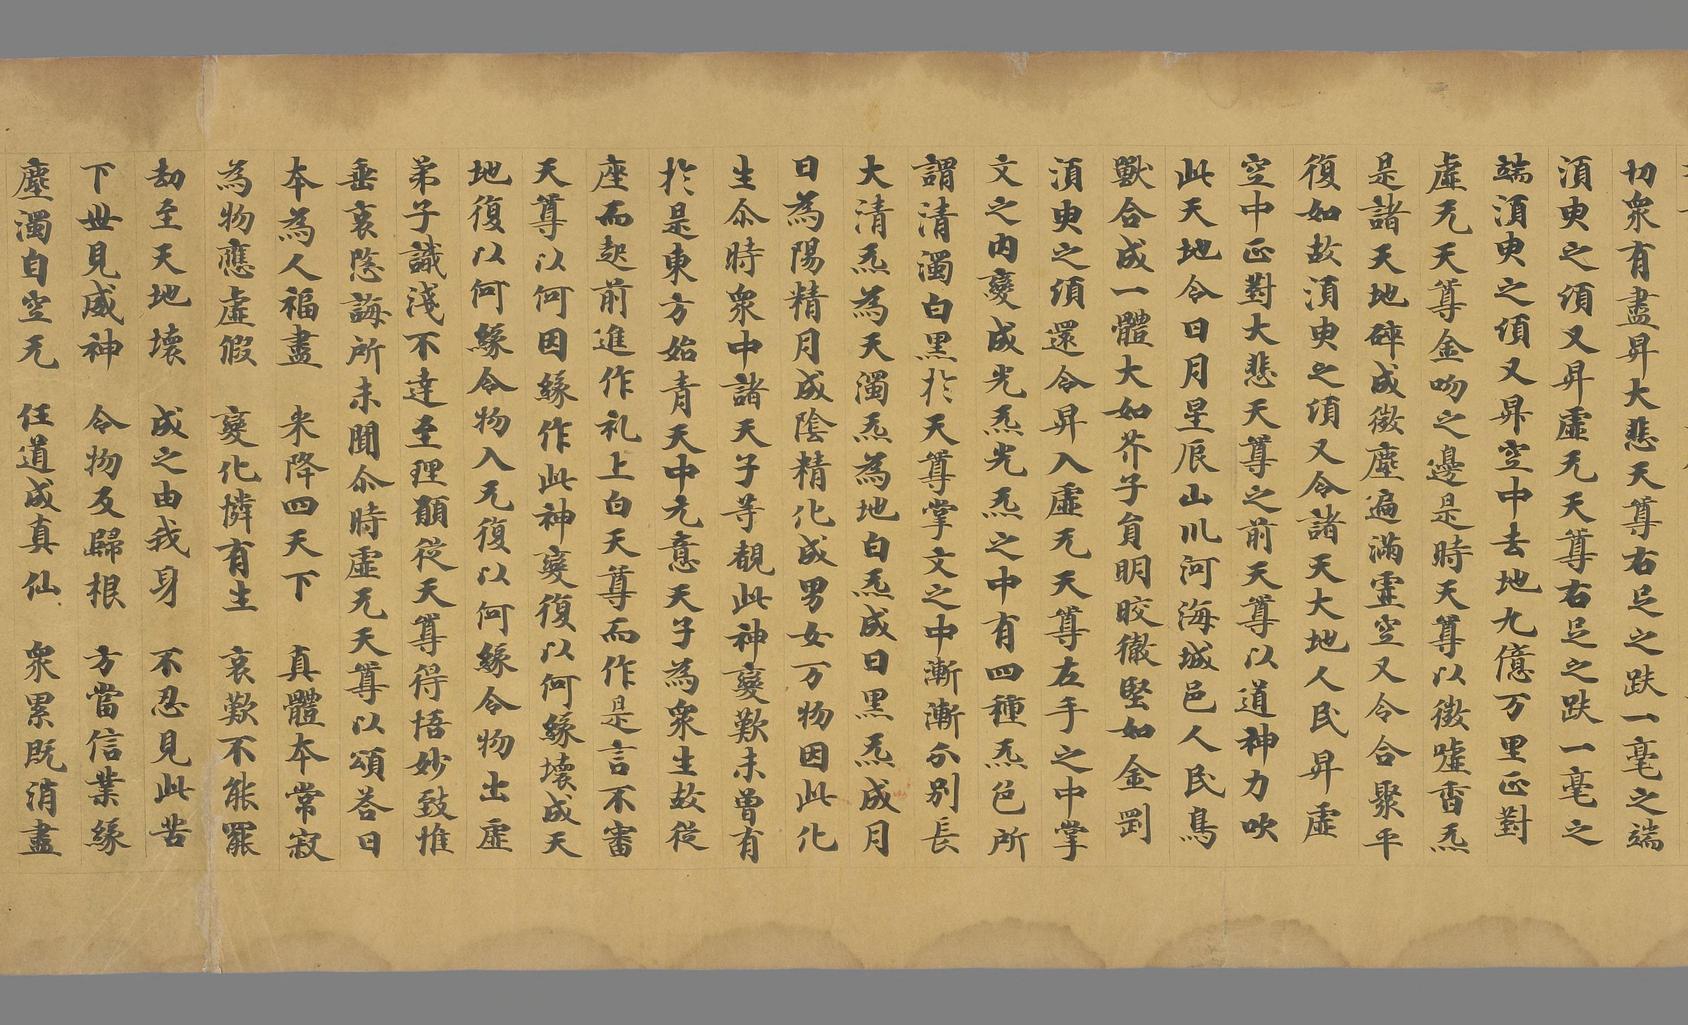 切衆有盡昇大悲天尊右足之趺一毫之端
湏臾之頃又昇虛无天尊右足之趺一毫之
端湏臾之頃又昇空中去地九億万里正對
虛无天尊金吻之邊是時天尊以微噓香炁
是諸天地碎成微塵遍滿虛空又令合聚平
復如故湏臾之頃又令諸天大地人民昇虛
空中正對大悲天尊之前天尊以道神力吹
此天地令日月星辰山川河海城邑人民鳥
獸合成一體大如芥子貟明皎徹堅如金剛
湏臾之頃還令昇入虛无天尊左手之中掌
文之內變成光炁光炁之中有四種炁色所
謂清濁白黑於天尊掌文之中漸漸分別長
大清炁為天濁炁為地白炁成日黑炁成月
日為陽精月成陰精化成男女万物因此化
生尒時衆中諸天子等覩此神變歎未曾有
於是東方始青天中元意天子為衆生故從
座而起前進作礼上白天尊而作是言不審
天尊以何因緣作此神變復以何緣壞成天
地復以何緣令物入无復以何緣令物出虛
弟子識淺不達至理願從天尊得悟妙致惟
垂哀愍誨所未聞尒時虛无天尊以頌荅曰
本為人福盡　来降四天下　真體本常寂
為物應虛假　變化憐有生　哀歎不能罷
劫至天地壞　成之由我身　不忍見此苦
下世見威神　令物反歸根　方當信業緣
塵濁自空无　任道成真仙　衆累既消盡